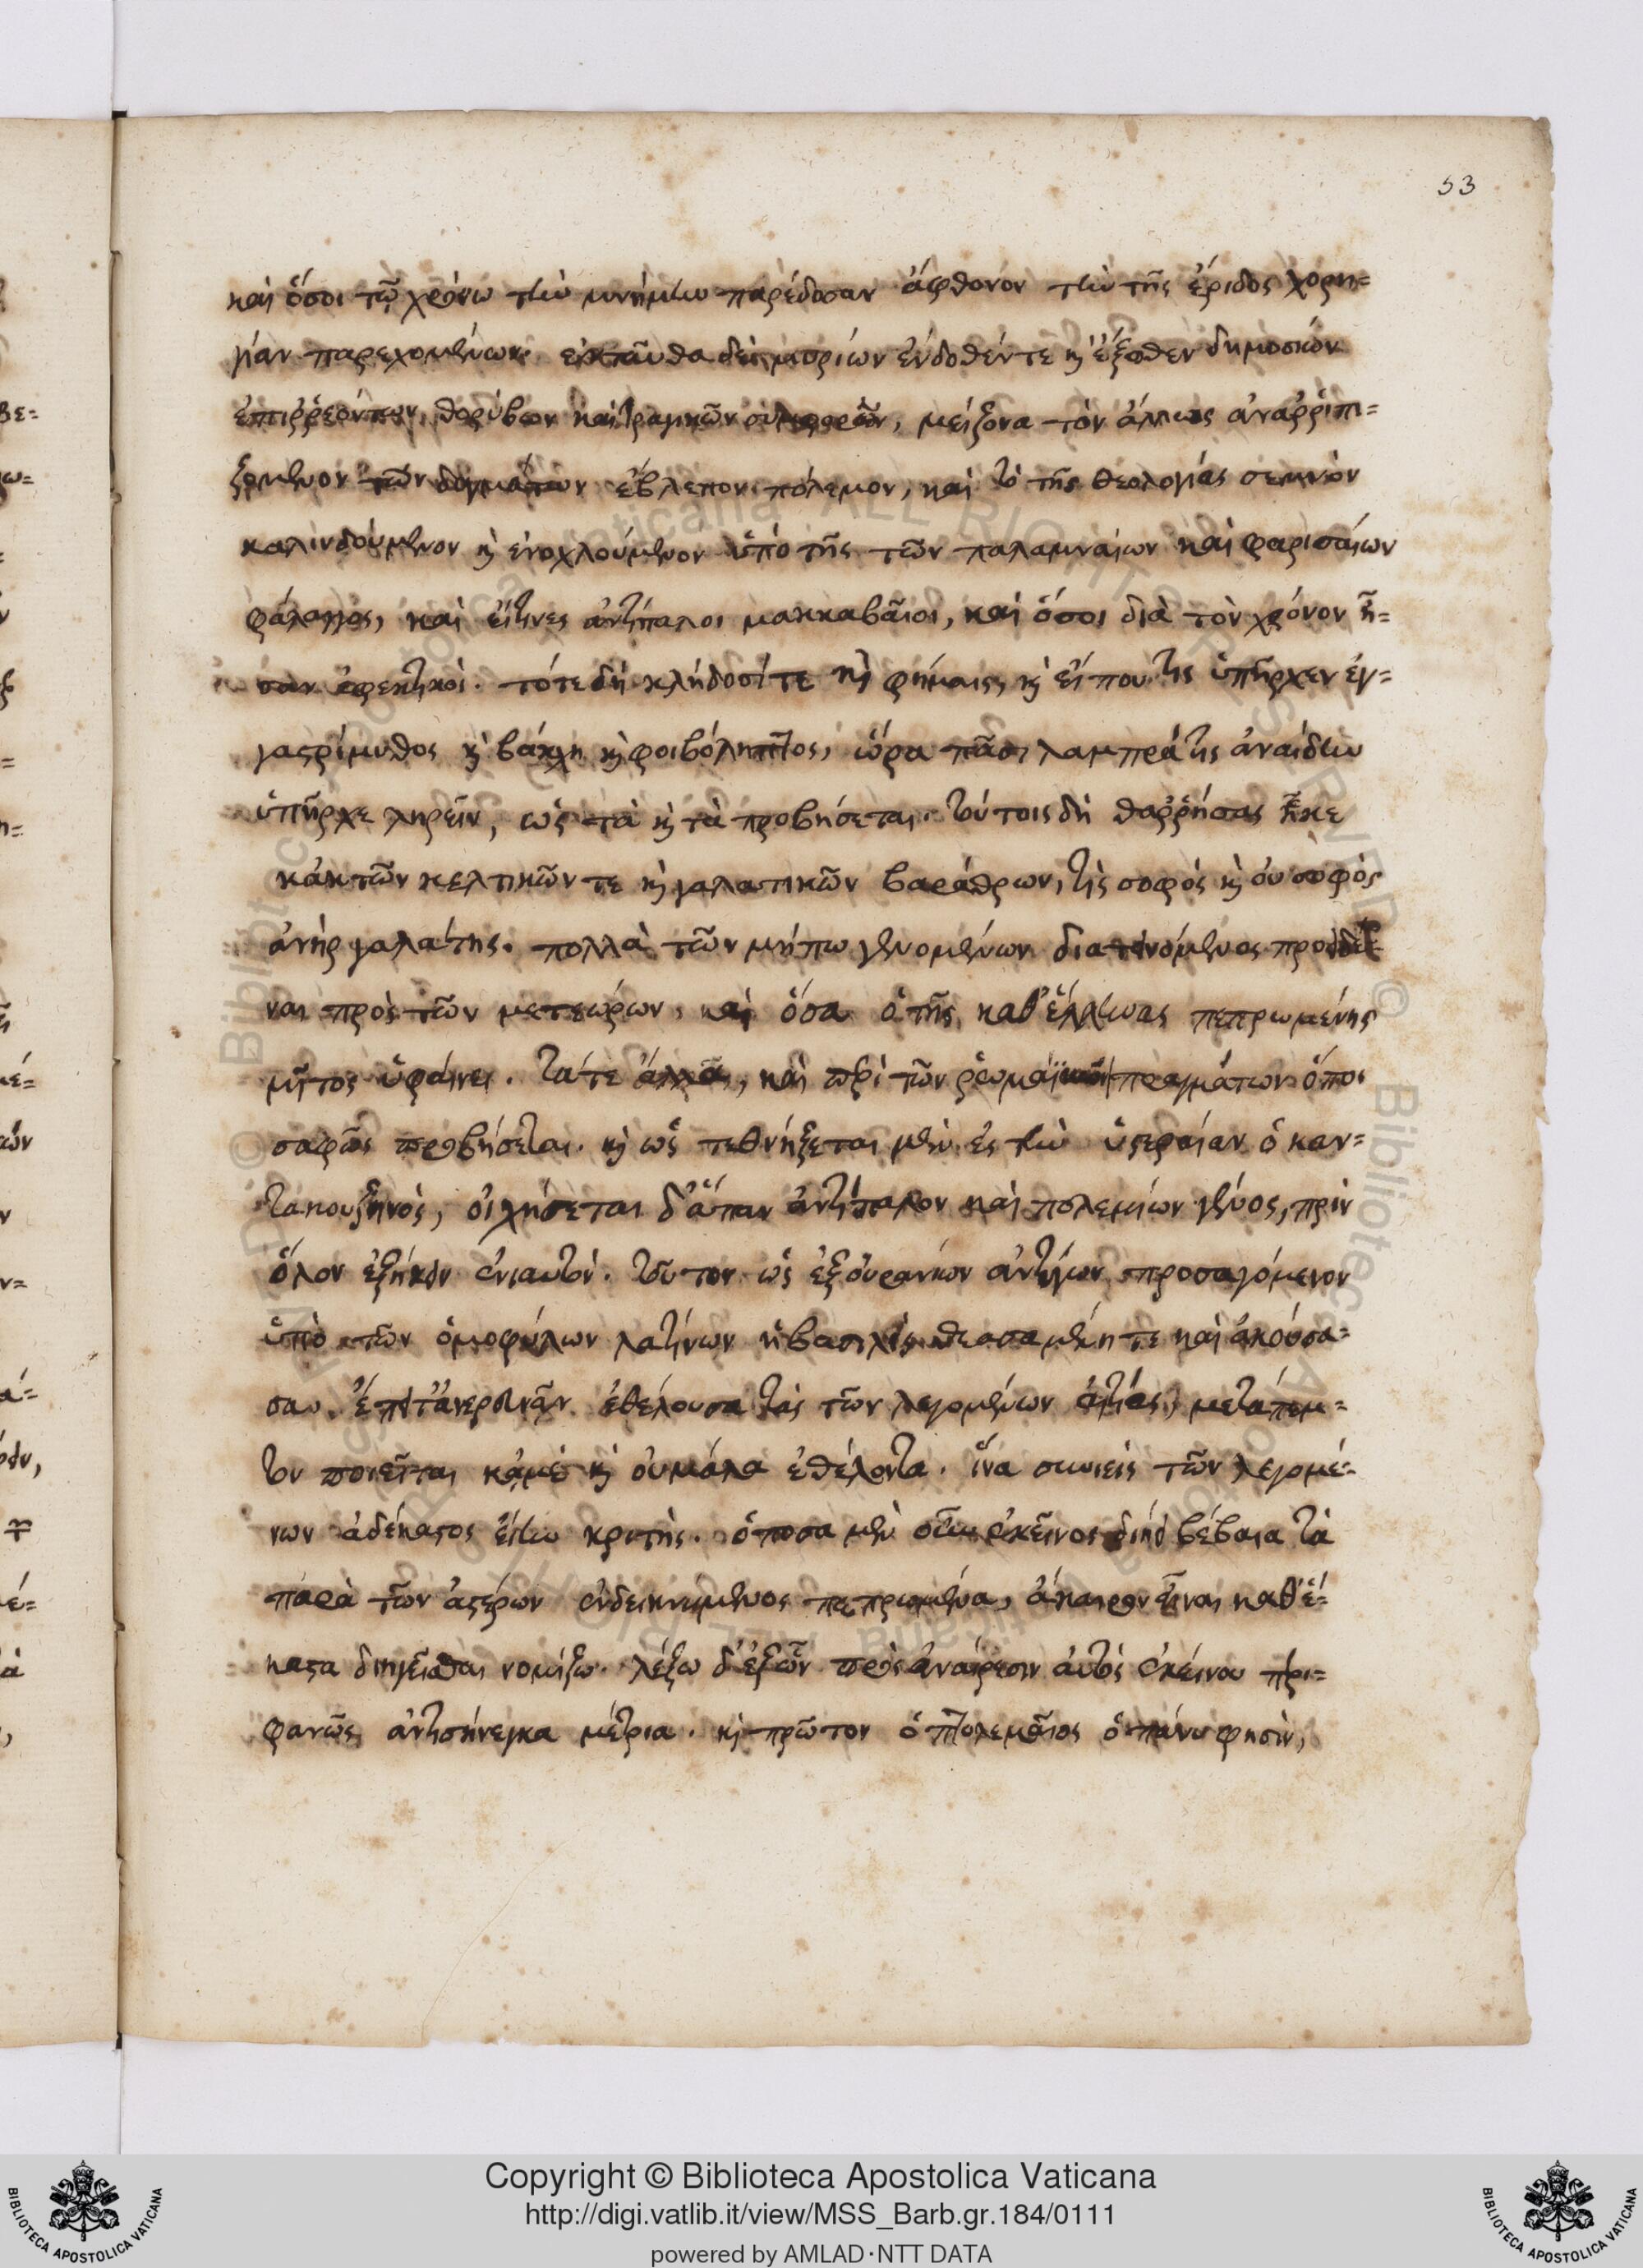 53
καὶ ὅσοι τῷ χρόνῳ τὴν μνήμην παρέδοσαν ἄφθονον τὴν τῆς ἔριδος χορη=
γίαν παρεχομένων. ἐνταῦθα δὲ μυρίων ἔνδοθέν τε καὶ ἔξωθεν δημοσίων
ἐπιῤῥεόντων θορύβων καὶ τραγικῶν συμφορῶν, μείζονα τὸν ἄλλως ἀναῤῥιπι=
ζόμενον τῶν δογμάτων ἔβλεπον πόλεμον, καὶ τὸ τῆς θεολογίας σεμνὸν
καλινδούμενον καὶ ἐνοχλούμενον ὑπὸ τῆς τῶν παλαμναίων καὶ φαρισαίων
φάλαγγος, καὶ εἴτινες ἀντίπαλοι μακκαβαῖοι, καὶ ὅσοι διὰ τὸν χρόνον ἦ=
σαν ἐφεκτικοί. τότε δὴ κληδόσί τε καὶ φήμαις, καὶ εἴ που τις ὑπῆρχεν ἐγ=
γαστρίμυθος καὶ βάκχη καὶ φοιβόληπτος, ὥρα πᾶσι λαμπρά τις ἀναίδην
ὑπῆρχε ληρεῖν, ὡς τὰ καὶ τὰ προβήσεται. τούτοις δὴ θαῤῥήσας ἧκε
κἀκ τῶν κελτικῶν τε καὶ γαλατικῶν βαράθρων, τὶς σοφὸς καὶ οὐ σοφὸς
ἀνὴρ γαλάτης. πολλὰ τῶν μήπω γενομένων διατεινόμενος προϊδεῖ
ναι πρὸς τῶν μετεώρων, καὶ ὅσα ὁ τῆς καθ' ἕλληνας πεπρωμένης
μῖτος ὑφαίνει. τά τε ἄλλα, καὶ περὶ τῶν ῥωμαϊκῶν πραγμάτων ὅποι
σαφῶς προβήσεται. καὶ ὡς τεθνήξεται μὲν ἐς τὴν ὑστεραίαν ὁ καν=
τακουζηνὸς, οἰχήσεται δ' ἅπαν ἀντίπαλον καὶ πολεμίων γένος, πρὶν
ὅλον ἐξήκειν ἐνιαυτόν. τοῦτον ὡς ἐξ οὐρανίων ἀντύγων προσαγόμενον
ὑπὸ τῶν ὁμοφύλων λατίνων ἡ βασιλὶς θεασαμένη τε καὶ ἀκούσα=
σα ἐθέλουσα τὰς τῶν λεγομένων αἰτίας, μετάπεμ=
τον ποιεῖται κἀμὲ καὶ οὐ μάλα ἐθέλοντα. ἵνα συνιεὶς τῶν λεγομέ=
νων ἀδέκαστος εἴην κριτής. ὁπόσα μὲν οὖν ἐκεῖνος διῄει βέβαια τὰ
παρὰ τῶν ἀστέρων ἐνδεικνύμενος πεπρωμένα, ἄκαιρον εἶναι καθ' ἕ=
καστα διηγεῖσθαι νομίζω. λέξω δ' ἐξ ὧν πρὸς ἀναίρεσιν αὐτὸς ἐκείνου περι=
φανῶς ἀντισήνεγκα μέτρια. καὶ πρῶτον ὁ πτολεμαῖος ὁ πάνυ φησὶν,
Copyright © Biblioteca Apostolica Vaticana
http://digi.vatlib.it/view/MSS_Barb.gr.184/0111
powered by AMLAD·NTT DATA
BIBLIOTECA APOSTOLICA VATICANA
BIBLIOTECA APOSTOLICA VATICANA